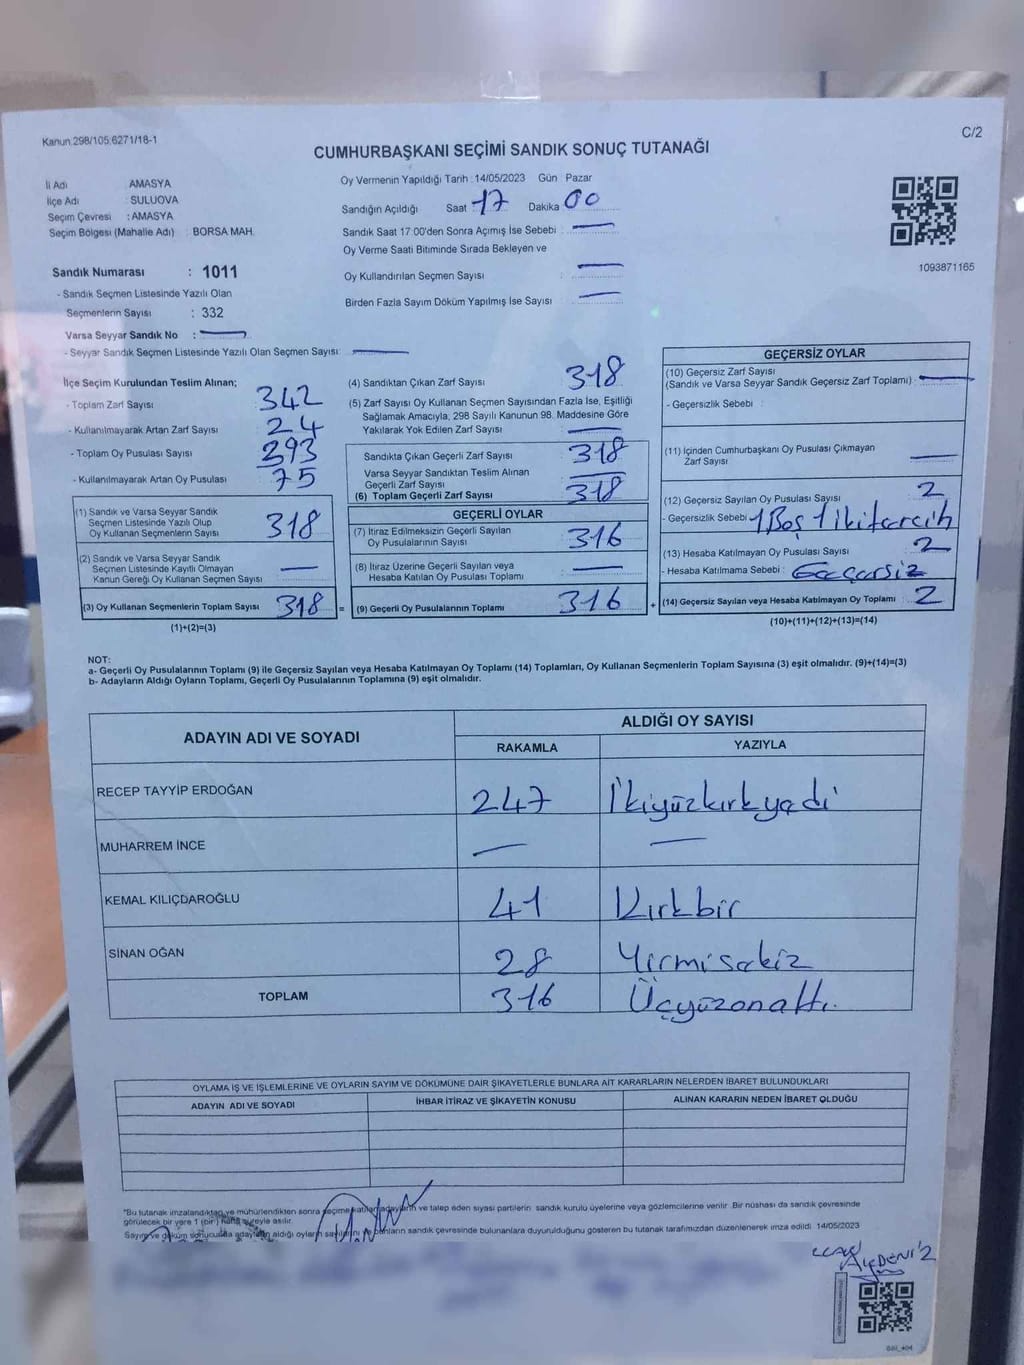 Kanun:298/105,6271/18-1
C/2
CUMHURBAŞKANI SEÇİMİ SANDIK SONUÇ TUTANAĞI
İl Adı : AMASYA
İlçe Adı : SULUOVA
Seçim Çevresi : AMASYA
Seçim Bölgesi (Mahalle Adı) : BORSA MAH.
Sandık Numarası : 1011
- Sandık Seçmen Listesinde Yazılı Olan
Seçmenlerin Sayısı : 332
Varsa Seyyar Sandık No : —
- Seyyar Sandık Seçmen Listesinde Yazılı Olan Seçmen Sayısı: —
Oy Vermenin Yapıldığı Tarih :14/05/2023 Gün Pazar
Sandığın Açıldığı Saat 17 Dakika 00
Sandık Saat 17:00'den Sonra Açımış İse Sebebi : —
Oy Verme Saati Bitiminde Sırada Bekleyen ve
Oy Kullandırılan Seçmen Sayısı : —
Birden Fazla Sayım Döküm Yapılmış İse Sayısı : —
1093871165
İlçe Seçim Kurulundan Teslim Alınan;
- Toplam Zarf Sayısı 342
- Kullanılmayarak Artan Zarf Sayısı 24
- Toplam Oy Pusulası Sayısı 393
- Kullanılmayarak Artan Oy Pusulası 75
(1) Sandık ve Varsa Seyyar Sandık
Seçmen Listesinde Yazılı Olup
Oy Kullanan Seçmenlerin Sayısı 318
(2) Sandık ve Varsa Seyyar Sandık
Seçmen Listesinde Kayıtlı Olmayan
Kanun Gereği Oy Kullanan Seçmen Sayısı —
(3) Oy Kullanan Seçmenlerin Toplam Sayısı 318 =
(1)+(2)=(3)
(4) Sandıktan Çıkan Zarf Sayısı 318
(5) Zarf Sayısı Oy Kullanan Seçmen Sayısından Fazla İse, Eşitliği
Sağlamak Amacıyla, 298 Sayılı Kanunun 98. Maddesine Göre
Yakılarak Yok Edilen Zarf Sayısı —
Sandıkta Çıkan Geçerli Zarf Sayısı 318
Varsa Seyyar Sandıktan Teslim Alınan
Geçerli Zarf Sayısı —
(6) Toplam Geçerli Zarf Sayısı 318
GEÇERLİ OYLAR
(7) İtiraz Edilmeksizin Geçerli Sayılan
Oy Pusulalarının Sayısı 316
(8) İtiraz Üzerine Geçerli Sayılan veya
Hesaba Katılan Oy Pusulası Toplamı —
(9) Geçerli Oy Pusulalarının Toplamı 316 +
GEÇERSİZ OYLAR
(10) Geçersiz Zarf Sayısı
(Sandık ve Varsa Seyyar Sandık Geçersiz Zarf Toplamı) : —
- Geçersizlik Sebebi :
(11) İçinden Cumhurbaşkanı Oy Pusulası Çıkmayan
Zarf Sayısı —
(12) Geçersiz Sayılan Oy Pusulası Sayısı 2
- Geçersizlik Sebebi 1 Boş 1 iki tercih
(13) Hesaba Katılmayan Oy Pusulası Sayısı 2
- Hesaba Katılmama Sebebi : Geçersiz
(14) Geçersiz Sayılan veya Hesaba Katılmayan Oy Toplamı : 2
(10)+(11)+(12)+(13)=(14)
NOT:
a- Geçerli Oy Pusulalarının Toplamı (9) ile Geçersiz Sayılan veya Hesaba Katılmayan Oy Toplamı (14) Toplamları, Oy Kullanan Seçmenlerin Toplam Sayısına (3) eşit olmalıdır. (9)+(14)=(3)
b- Adayların Aldığı Oyların Toplamı, Geçerli Oy Pusulalarının Toplamına (9) eşit olmalıdır.
ADAYIN ADI VE SOYADI
ALDIĞI OY SAYISI
RAKAMLA YAZIYLA
RECEP TAYYİP ERDOĞAN 247 İkiyüzkırkyedi
MUHARREM İNCE — —
KEMAL KILIÇDAROĞLU 41 Kırkbir
SİNAN OĞAN 28 Yirmisekiz
TOPLAM 316 Üçyüzonaltı
OYLAMA İŞ VE İŞLEMLERİNE VE OYLARIN SAYIM VE DÖKÜMÜNE DAİR ŞİKAYETLERLE BUNLARA AİT KARARLARIN NELERDEN İBARET BULUNDUKLARI
ADAYIN ADI VE SOYADI İHBAR İTİRAZ VE ŞİKAYETİN KONUSU ALINAN KARARIN NEDEN İBARET OLDUĞU
"Bu tutanak imzalandıktan ve mühürlendikten sonra seçime katılan adayların ve talep eden siyasi partilerin sandık kurulu üyelerine veya gözlemcilerine verilir. Bir nüshası da sandık çevresinde
görülecek bir yere 1 (bir) hafta süreyle asılır.
Sayım ve döküm sonucunda adayların aldığı oyların sayılarını ve bunların sandık çevresinde bulunanlara duyurulduğunu gösteren bu tutanak tarafımızdan düzenlenerek imza edildi 14/05/2023
AYDENİZ